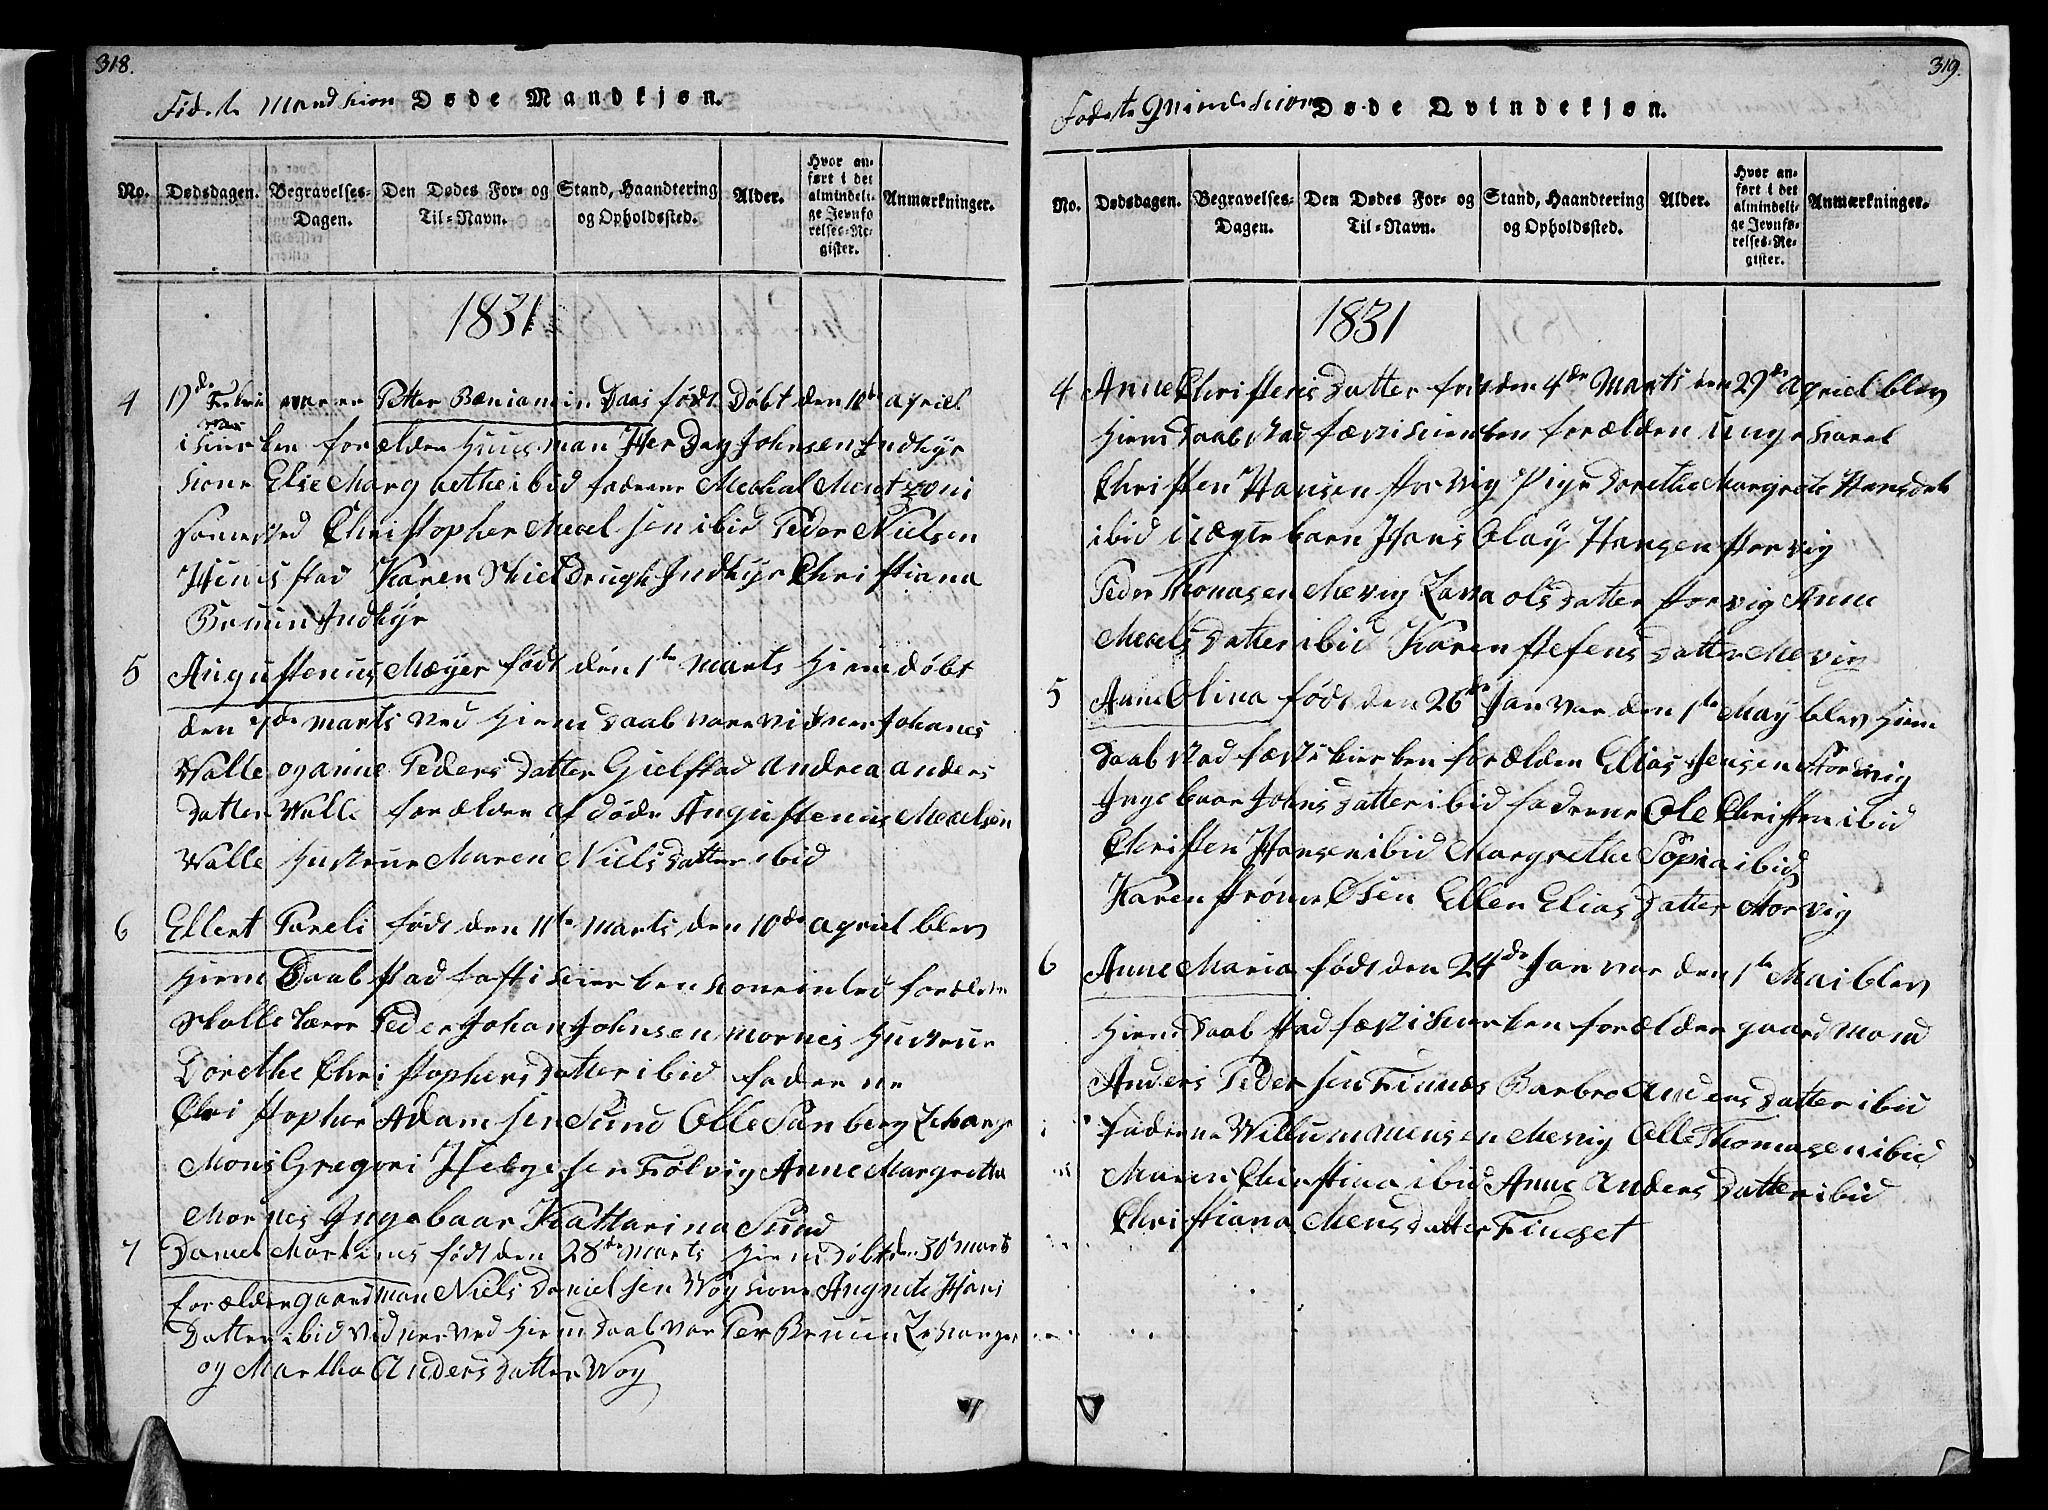 318.
Fødte Mandkion Døde Mandkjøn.
No. Dødsdagen. Begravelses-Dagen. Den Dødes For- og Til-Navn. Stand, Haandtering og Opholdssted. Alder. Hvor anført i det almindelige Jevnførelses-Register. Anmærkninger.
1831
4 17de Petter Beniamin Daas født Døbt den 10de apriel
forældre Huusman Per Dag Johnsen Indhyr
kone Else Marg
Christopher ibid Peder Nielsen
Karen Indhyr Christiana
Bruun Indhyr
5 Augustenus Meyer født den 1te Marts Hiemdøbt
den 7de Marts ved Hiemdaab vare vidner Johanes
Valle og anne Peders datter Gielstad andrea anders
datter Valle forældre Augustenus
Valle Hustrue Maren Nielsdatter ibid
6 Ellert Pareli født den 11te Marts den 10de apriel blev
Hiem Daab stad forælder
Peder Johan Johnsen mornes Hustrue
Dorethe Christophersdatter ibid faderne
Christopher Adamsen Sund Olle Sanberg
Mons Gregori Anne Margretha
Mornes Ingebaar Kattarina Sund
7 Daniel Martinus født den 28de Marts Hiemdøbt den 30te Marts
forældre gaardman Niels Danielsen Vog kone Angnete Hans
Datter ibid vidner ved Hiemdaab var Per Bruun
og Martha Anders datter Vog
319.
Fødte Qvindekion Døde Qvindekjøn.
No. Dødsdagen. Begravelses-Dagen. Den Dødes For- og Til-Navn. Stand, Haandtering og Opholdssted. Alder. Hvor anført i det almindelige Jevnførelses-Register. Anmærkninger.
1831
4 Anne Christensdatter født den 4de Marts den 29de Apriel blev
Hiemdaab stadfæst i kierken forælder unge karl
Christen Hansen storvig Pige Dorethe Margrete Hansdatt
ibid uægte barn Hans Olay Hansen storvig
Peder Thomasen Mevig Lava olsdatter storvig Anne
datter ibid Karen stefens datter Mevig
5 Anne Olina født den 26de Januar den 1te May blev Hiem
daab stadfæst i kierken forælder Elias Jensen Storvig
Ingebaar Johnsdatter ibid faderne Ole Christen ibid
Christen Hansen ibid Margrethe Sopia ibid
Karen Ellen Elias datter Storvig
6 Anne Maria født den 24de Januar den 1te Mai blev
Hiemdaab stadfæst i kierken forælder gaardmand
Anders Pedersen Finnæs Barbro Andersdatter ibid
Faderne Villum Mensen Mevig Olle Thomasen ibid
Maren Christina ibid Anne Anders datter ibid
Christiana Mensdatter Finset